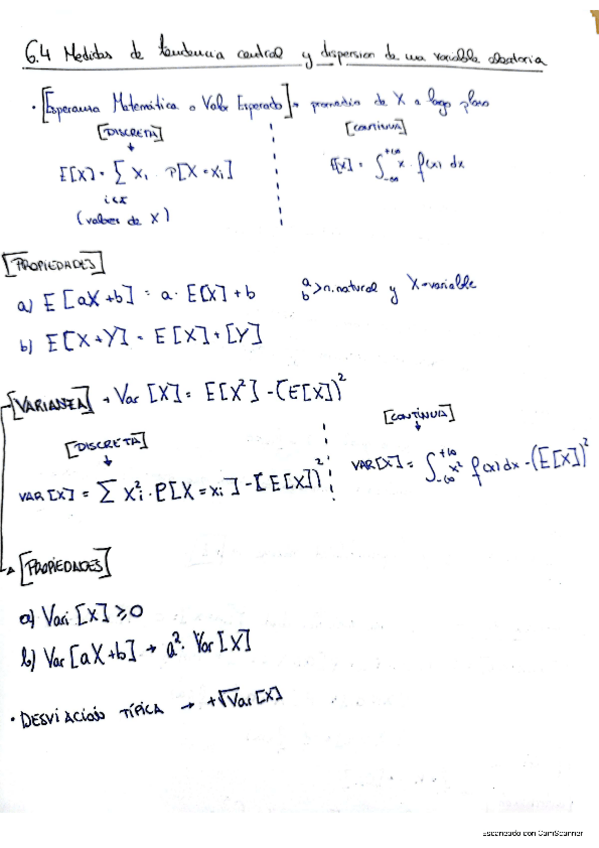 6.4 Medidas de tendencia central y dispersion de una variable aleatoria
· [Esperanza Matemática o Valor Esperado] → promedio de X a largo plazo
[DISCRETA] [CONTINUA]
↓
E[X] = ∑ xi · P[X = xi] E[X] = ∫ -∞ +∞ x · f(x) dx
i ∈ x
(valores de X)
[PROPIEDADES]
a) E[aX+b] = a · E[X] + b a b > n. natural y X → variable
b) E[X+Y] = E[X] + [Y]
[VARIANZA] → Var [X] = E[X²] - (E[X])²
[DISCRETA] [CONTINUA]
↓ ↓
VAR[X] = ∑ xi² · P[X = xi] - [E[X])² VAR[X] = ∫ -∞ +∞ x² f(x) dx - (E[X])²
→ [PROPIEDADES]
a) Vari [X] ≥ 0
b) Var [aX+b] → a² · Var [X]
· DESVIACIÓN TÍPICA → +√Var [X]
Escaneado con CamScanner